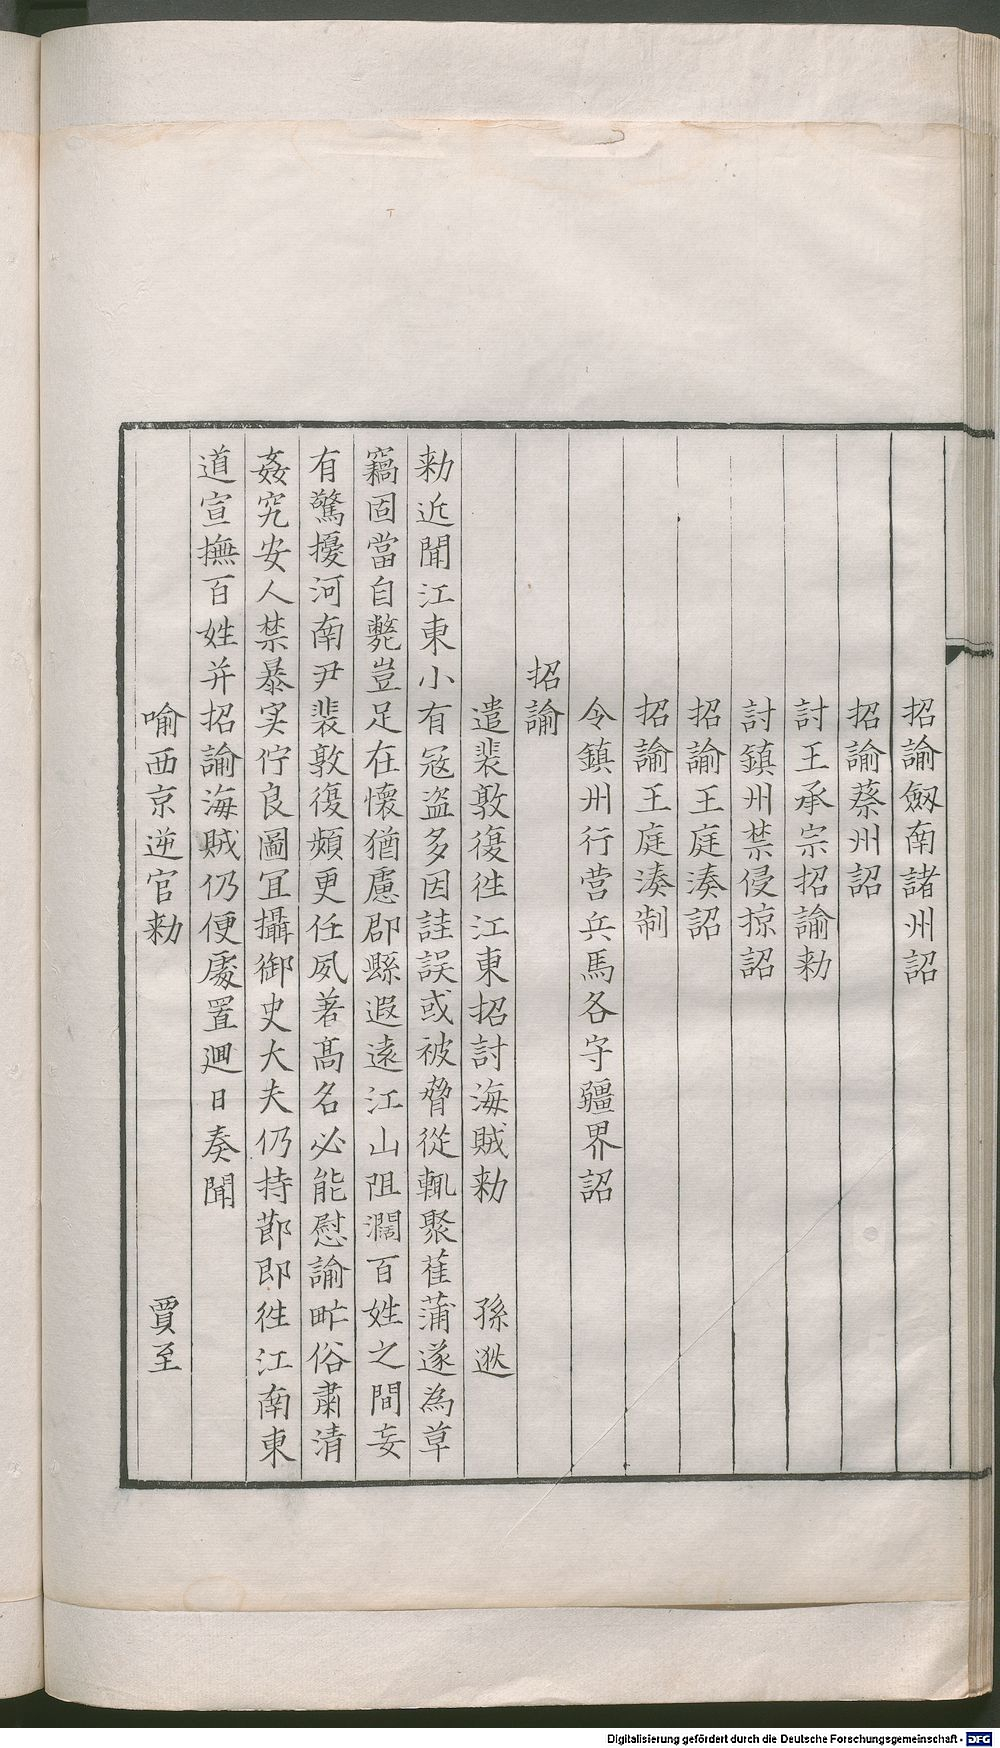 招諭劔南諸州詔
招諭蔡州詔
討王承宗招諭勑
討鎮州禁侵掠詔
招諭王庭湊詔
招諭王庭湊制
令鎮州行營兵馬各守疆界詔
招諭
遣裴敦復徃江東招討海賊勑 孫逖
勑近聞江東小有冦盗多因詿誤或被脅從輒聚萑蒲遂為草
竊固當自斃豈足在懷猶慮郡縣遐遠江山阻濶百姓之間妄
有驚擾河南尹裴敦復頻更任夙著髙名必能慰諭甿俗肅清
姦宄安人禁暴实佇良圖冝攝御史大夫仍持節即徃江南東
道宣撫百姓并招諭海賊仍便處置廻日奏聞
喻西京逆官勑 賈至
Digitalisierung gefördert durch die Deutsche Forschungsgemeinschaft - DFG